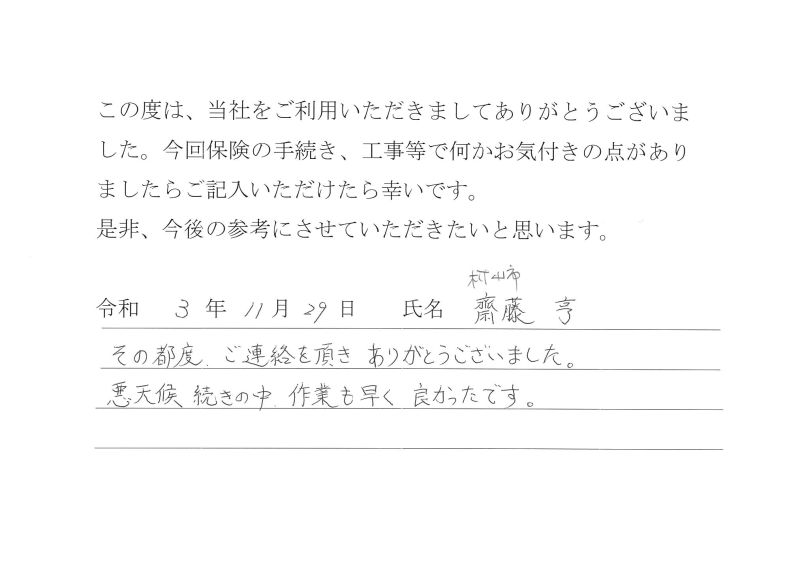 この度は、当社をご利用いただきましてありがとうございま
した。今回保険の手続き、工事等で何かお気付きの点があり
ましたらご記入いただけたら幸いです。
是非、今後の参考にさせていただきたいと思います。
村山市
令和 3 年 11 月 29 日 氏名 齋藤 亨
その都度、ご連絡を頂き ありがとうございました。
悪天候 続きの中、作業も早く 良かったです。